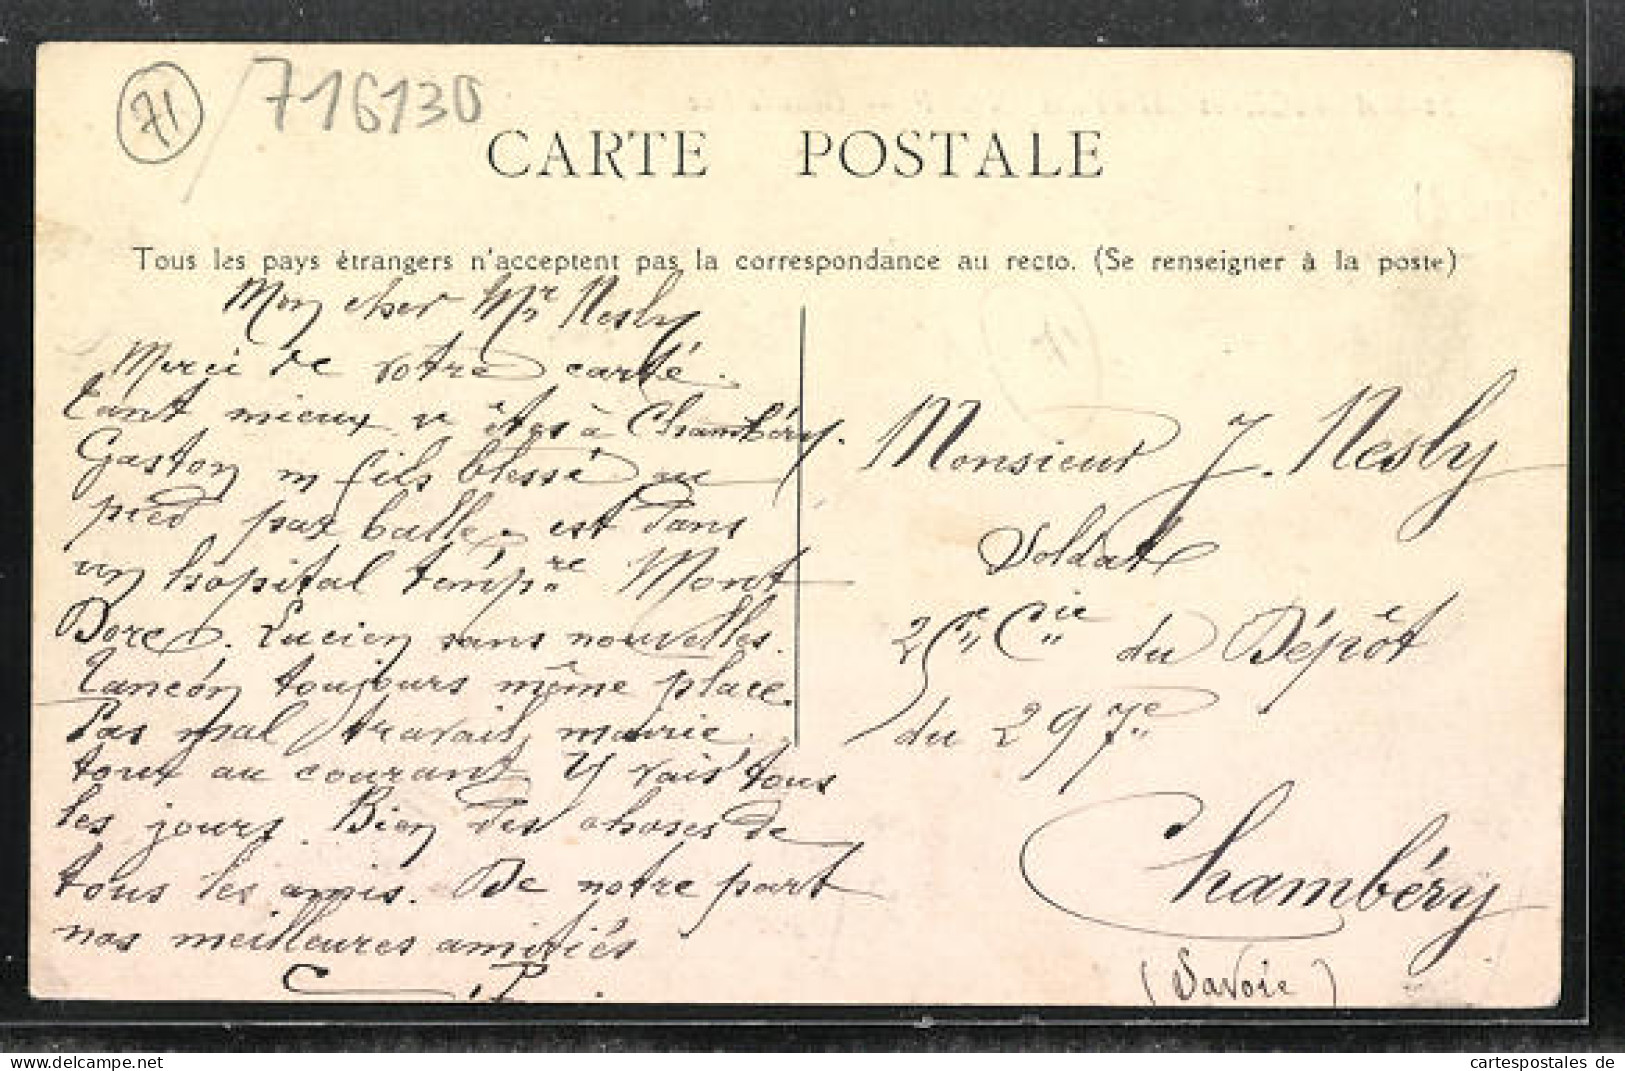 71
716130
CARTE POSTALE
Tous les pays étrangers n'acceptent pas la correspondance au recto. (Se renseigner à la poste)
Mon cher Mr Nesly
Merci de votre carte.
tant mieux v êtes à Chambéry.
Gaston m fils blessé au
pied par balle - est dans
un hôpital temp.re Mont
Dore. Lucien sans nouvelles.
toujours même place.
Pas mal travail mairie.
toux au courant Y vais tous
les jours. Bien des choses de
tous les amis. De notre part
nos meilleures amitiés
C. P.
Monsieur J. Nesly
Soldat
25e Cie du Dépôt
du 297e
Chambéry
(Savoie)
www.cartespostales.de
cartespostales de